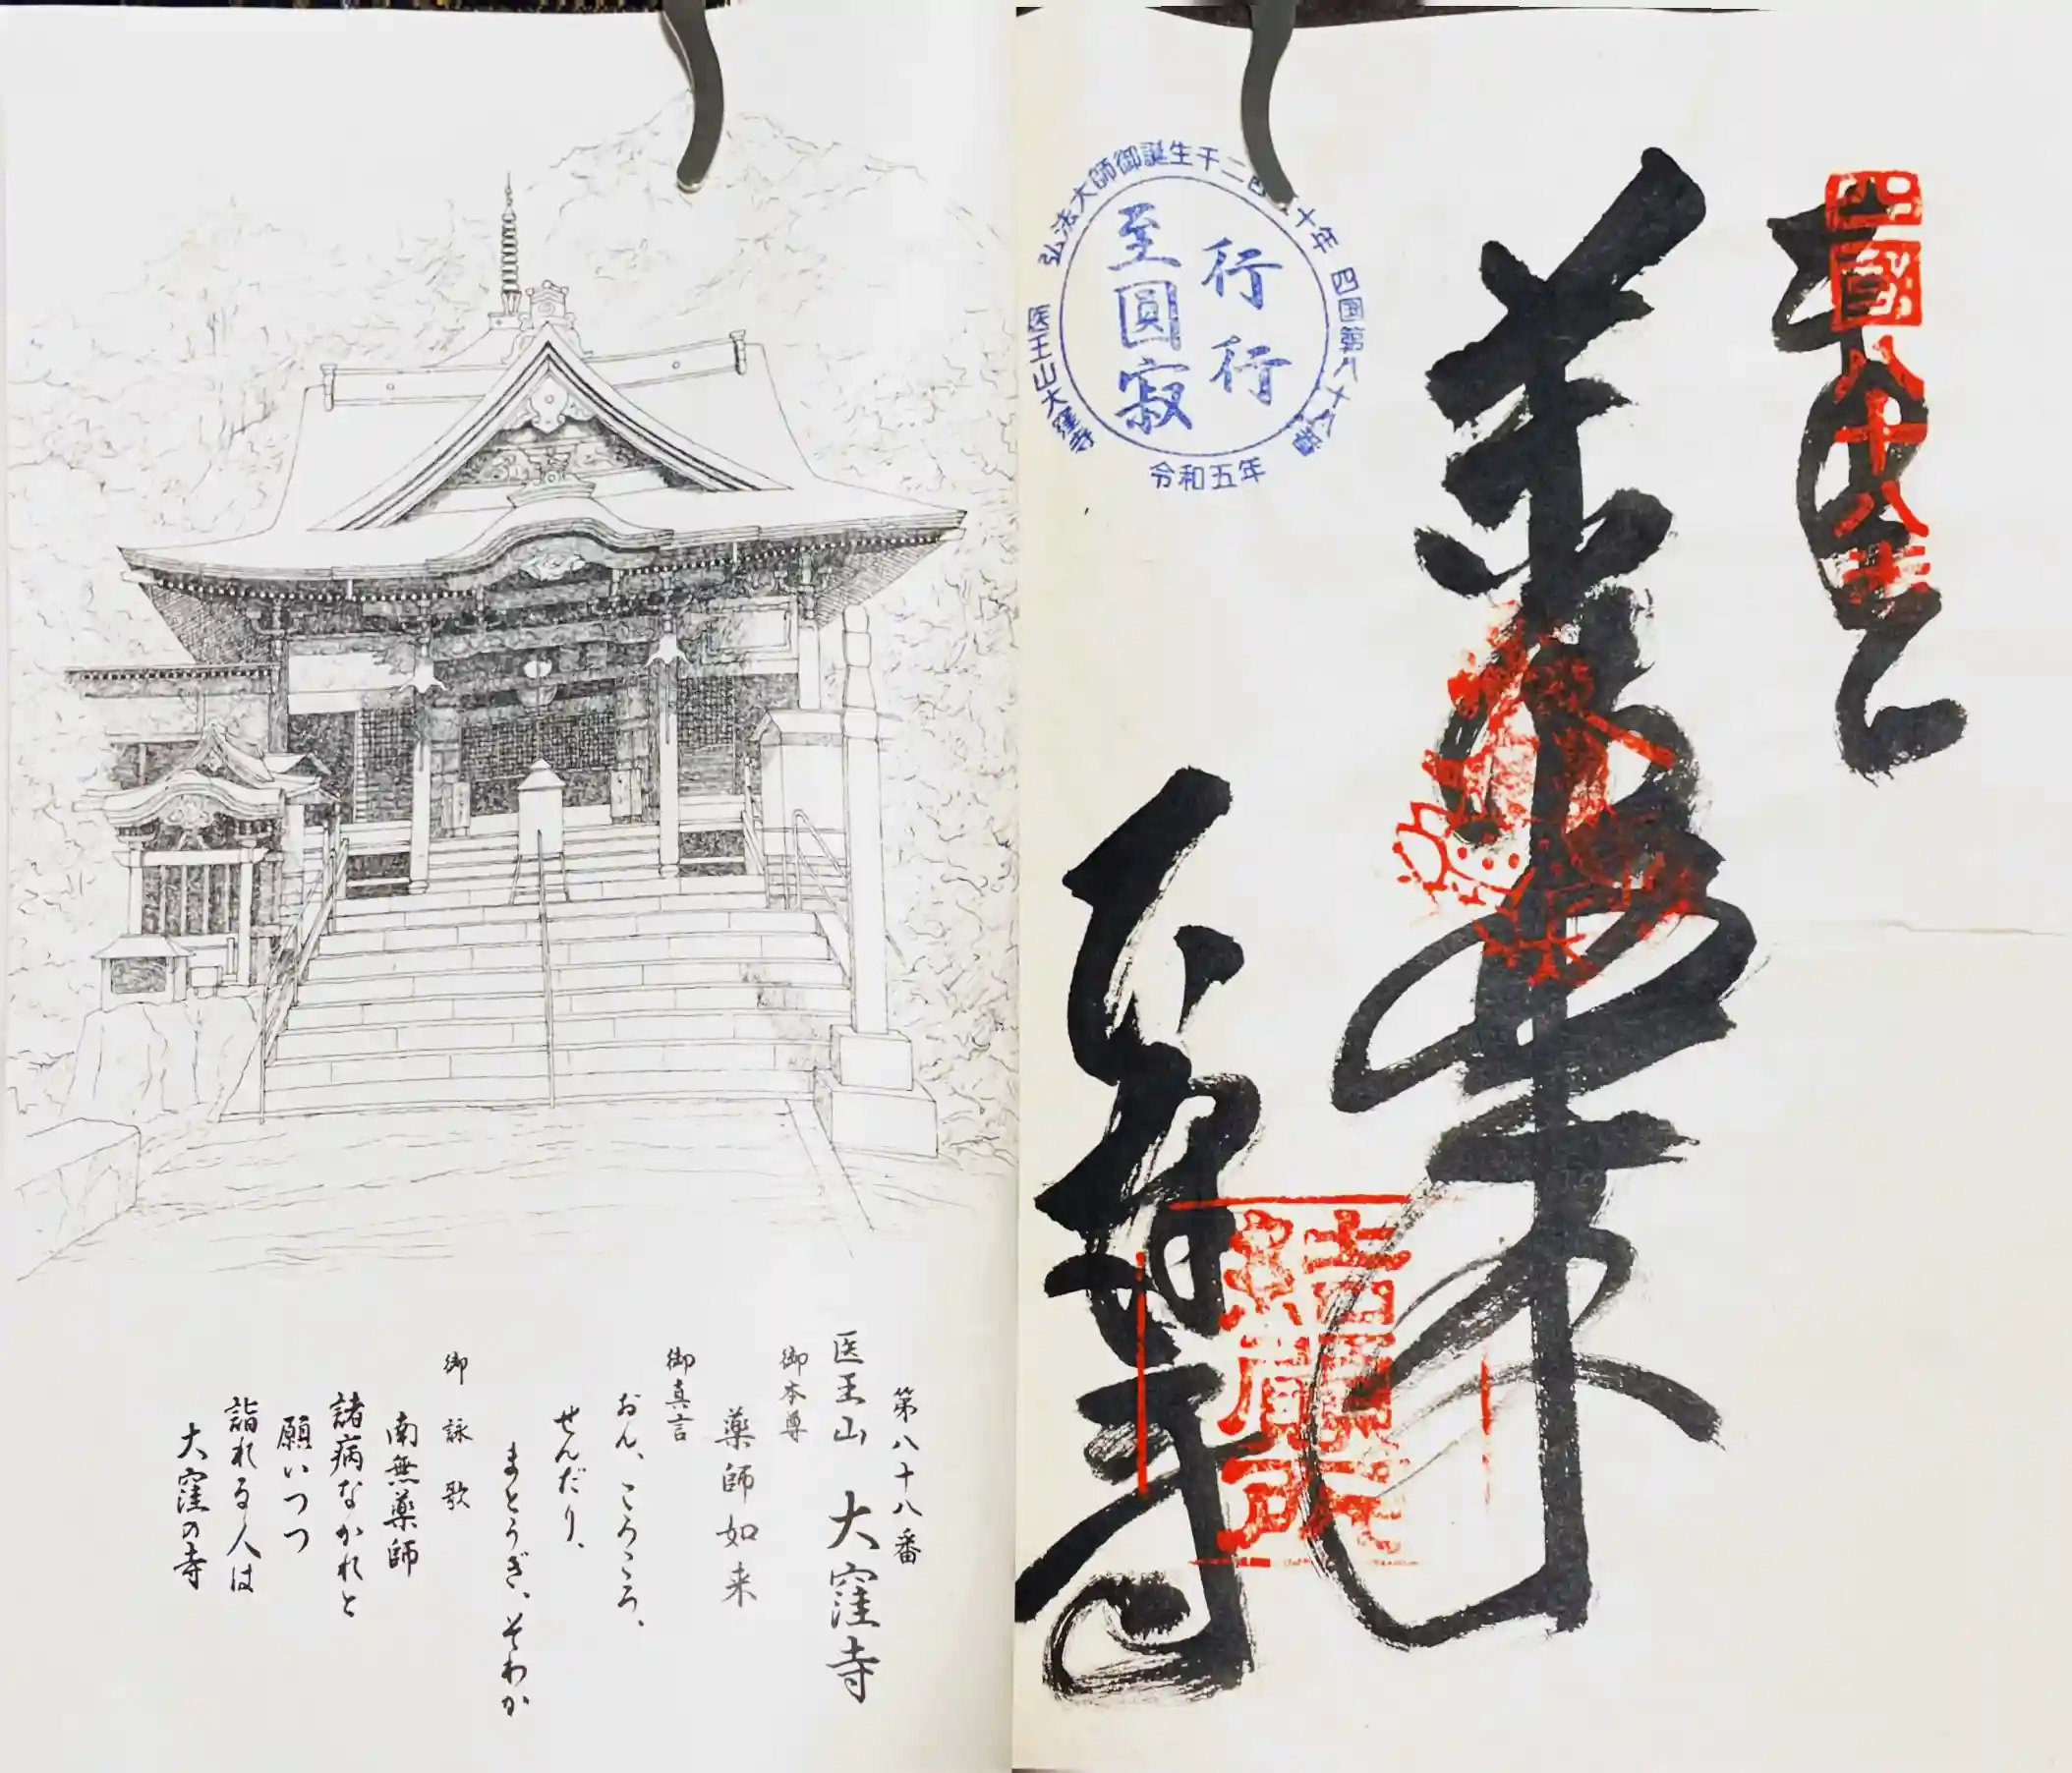 四國八十八番
奉納
薬師如来
大窪寺
結願所
弘法大師御誕生千二百 十年
四国第八十八番
医王山大窪寺
令和五年
行行
至圓寂
第八十八番
医王山 大窪寺
御本尊
薬師如来
御真言
おん、ころころ、
せんだり、
まとうぎ、そわか
御詠歌
南無薬師
諸病なかれと
願いつつ
詣れる人は
大窪の寺